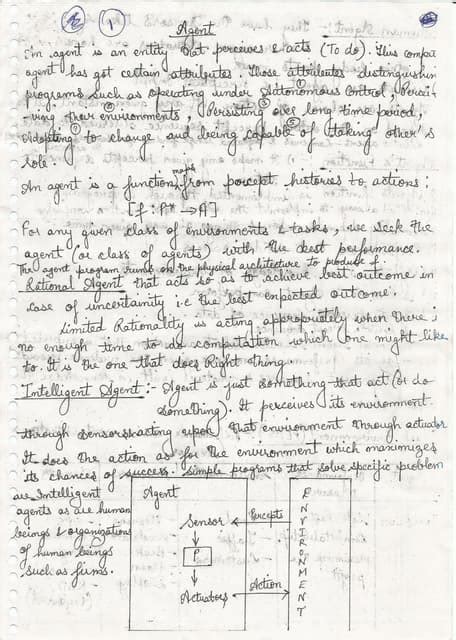 1
Agent
An agent is an entity that perceives & acts (To do). This
agent has got certain attributes. Those attributes
programs such as operating under Autonomous Control, Percei-
ving their environments, Persisting over long time period,
Adapting to change and being capable of taking other's
role.
An agent is a function maps from percept histories to actions:
[f : P* → A]
For any given class of environments & tasks, we seek the
agent (or class of agents) with the best performance.
The agent program runs on the physical architecture to produce f.
Rational Agent that acts so as to achieve best outcome in
case of uncertainity i.e the best expected outcome.
limited Rationality is acting appropriately when there i
no enough time to do computation which (one might like
to. It is the one that does Right thing.
Intelligent Agent:- Agent is just something that act (or do
something). It perceives its environment
through sensors & acting upon that environment through actuator
It does the action as for the environment which maximizes
its chances of success. simple programs that solve specific problem
are Intelligent
agents as are human
beings & organizations
of human beings
such as firms.
Agent
Sensor
P
Actuators
Percepts
Action
ENVIRONMENT